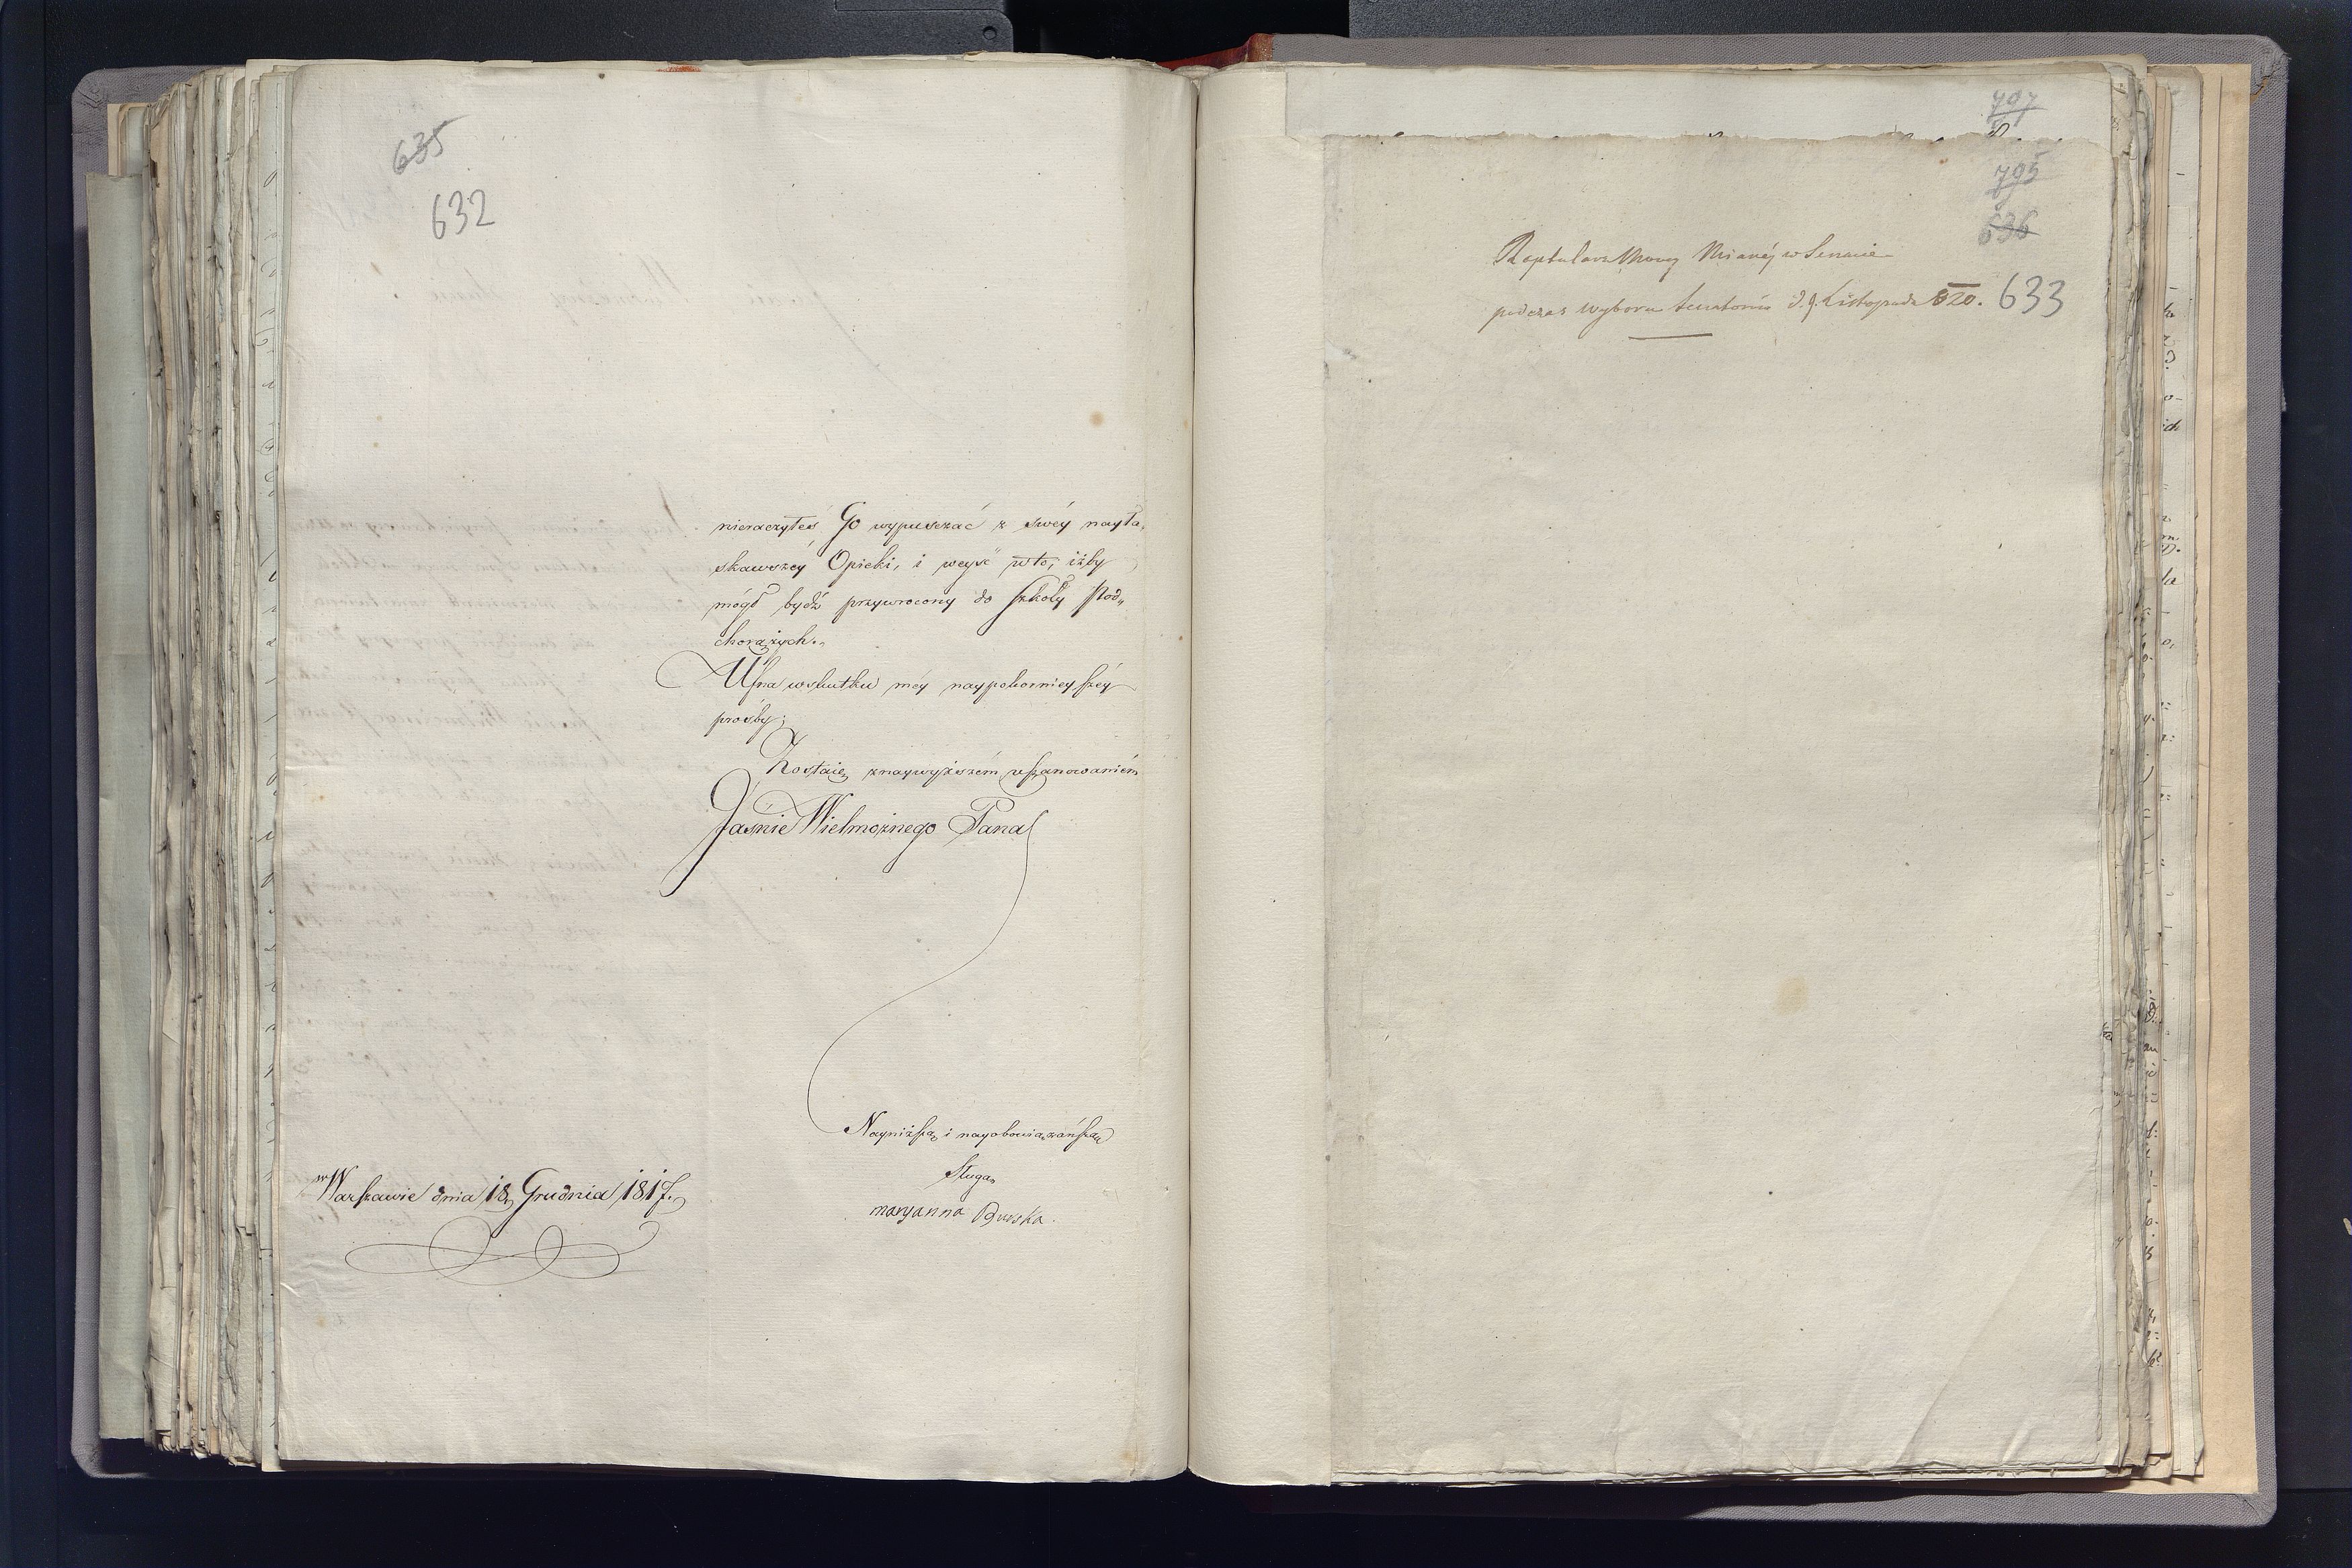 635
632
nieraczyłeś Go wypuszczać z swéy nayła-
skawszéy Opieki, i weyść w to, iżby
mógł bydź przywrocony do Szkoły Pod-
chorążych.
Ufna w skutku méy naypokornieyszéy
prośby;
Zostaię z naywyższém uszanowaniém
Jaśnie Wielmożnego Pana
Nayniższa i nayobowiązańsza
Sługa
maryanna Burska
w Warszawie dnia 18 Grudnia 1817.
707
705
636
Raptularz Mowy Mianéj w Senacie
podczas wyboru Senatorów d. 9. Listopada 820.
633